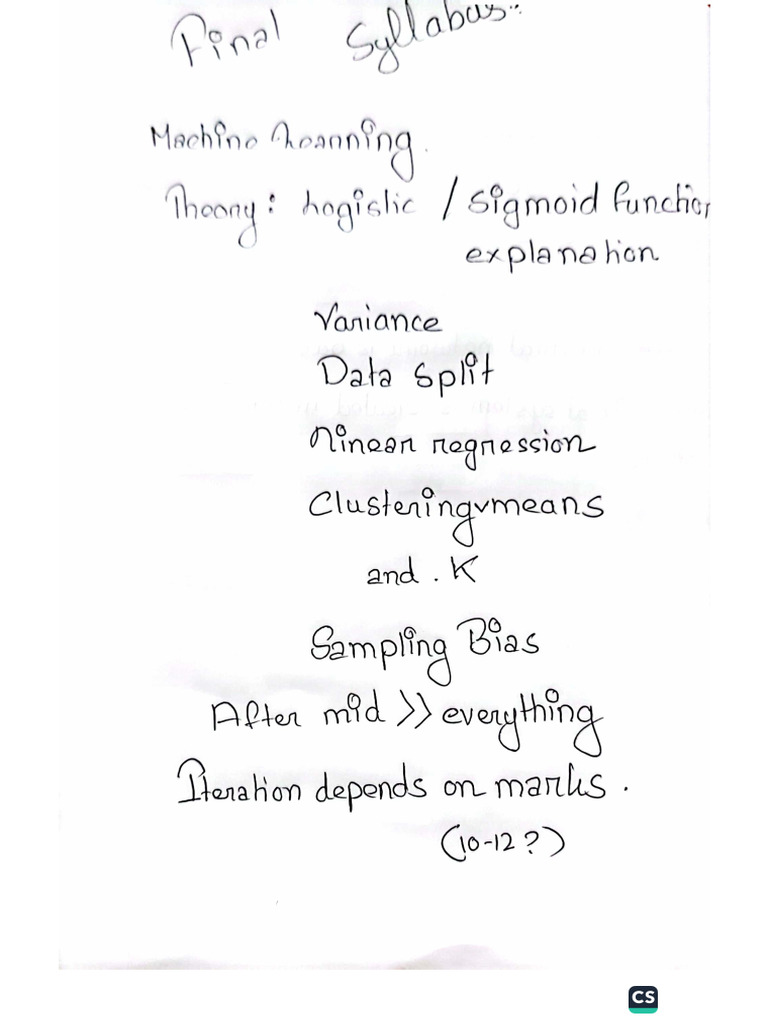 Final Syllabus..
Machine Learning.
Theory: Logistic / Sigmoid function
explanation
Variance
Data Split
Linear regression
Clustering means
and . K
Sampling Bias
After mid >> everything
Iteration depends on marks.
(10-12?)
CS